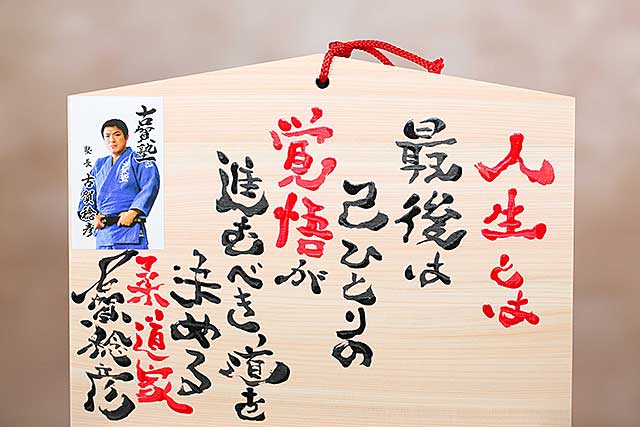 人生とは
最後は
己ひとりの
覚悟が
進むべき道を
決める
柔道家
古賀稔彦
古賀塾
塾長 古賀稔彦